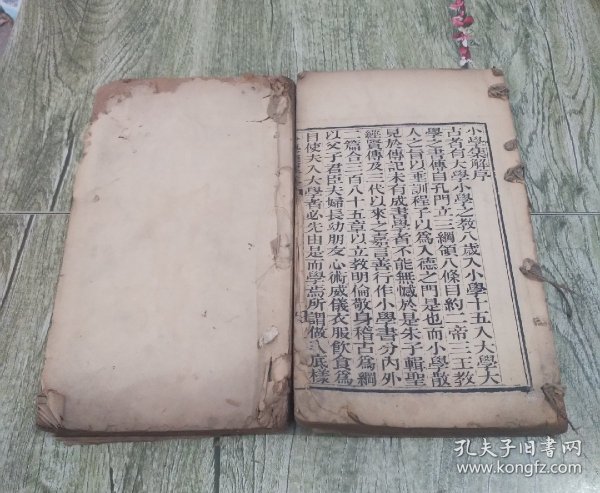 小學集解序
古者有大學小學之教八歲入小學十五入大學大
學之書傳自孔門立三綱領八條目約二帝三王教
人之旨以垂訓程子以為入德之門是也而小學散
見於傳記未有成書學者不能無憾於是朱子輯聖
經賢傳及三代以來之嘉言善行作小學書分內外
二篇合三百八十五章以立教明倫敬身稽古為綱
以父子君臣夫婦長幼朋友心術威儀衣服飲食為
目使夫入大學者必先由是而學焉所謂做人底樣
孔夫子旧書网
www.kongfz.com